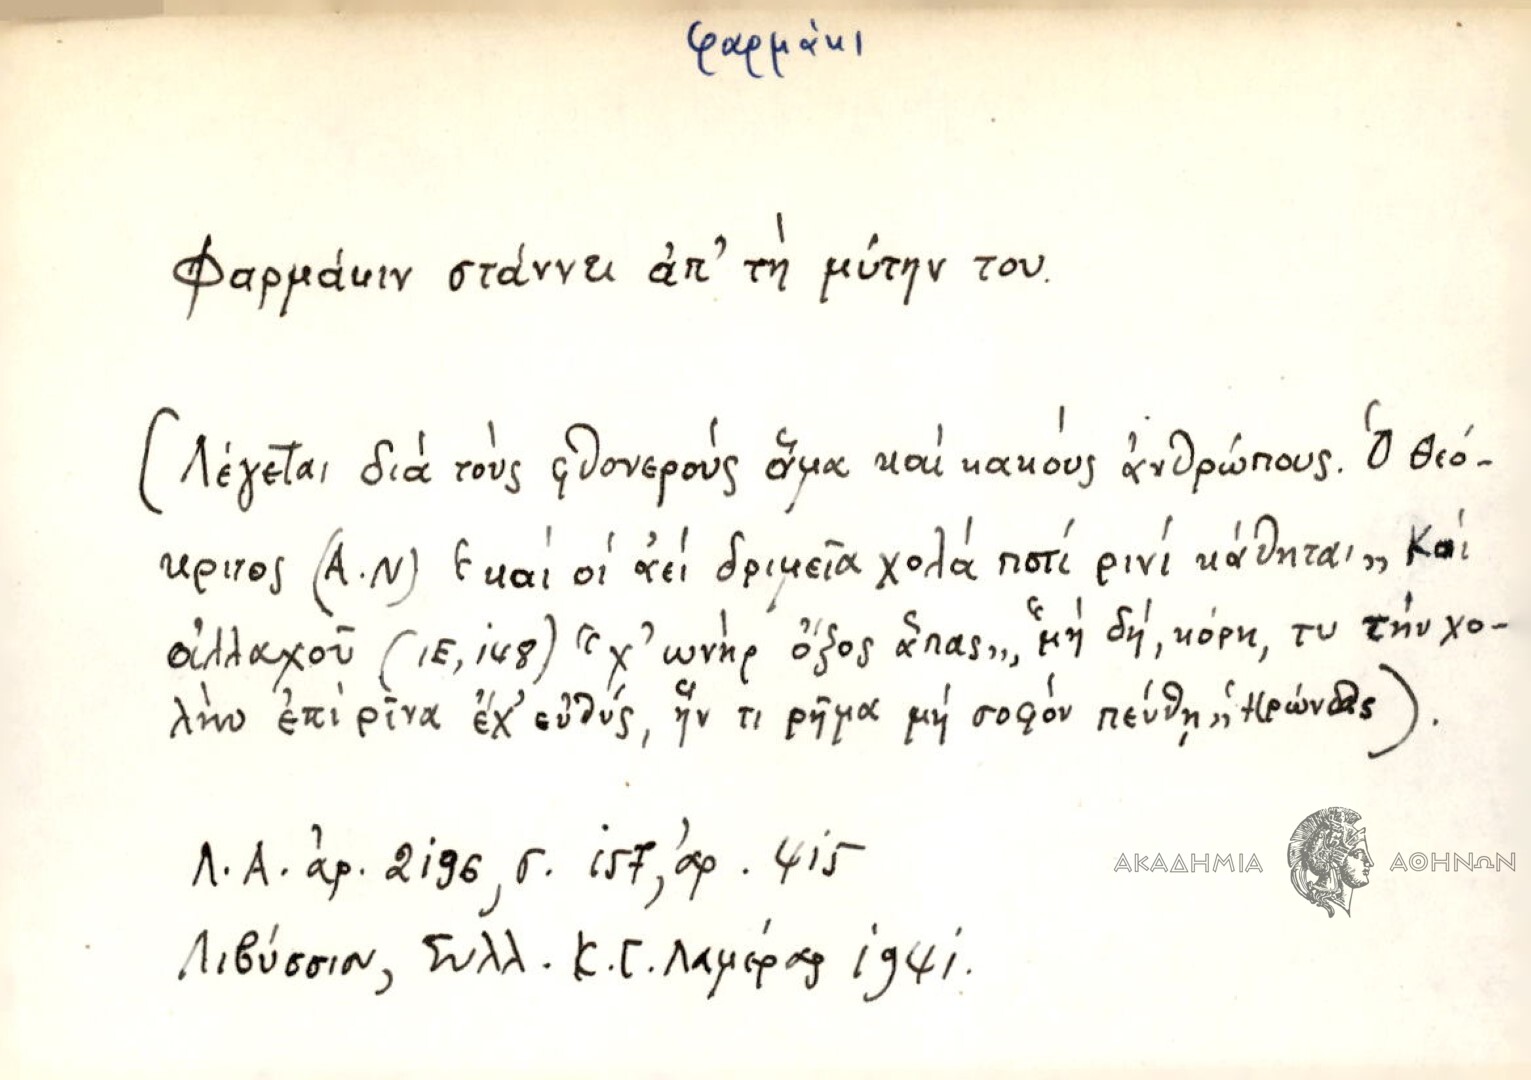 φαρμάκι
Φαρμάκιν στάννει ἀπ' τὴ μύτην του.
(Λέγεται διὰ τοὺς φθονεροὺς ἅμα καὶ κακοὺς ἀνθρώπους. Ὁ Θεό-
κριτος (Α.Ν) "καὶ οἱ ἀεὶ δριμεῖα χολὰ ποτὶ ρινὶ κάθηται" Καὶ
ἀλλαχοῦ (ΙΕ, 148) "χ' ὡνὴρ ὄξος ἅπας", "μὴ δή, κόρη, τυ τὴν χο-
λὴν ἐπὶ ρῖνα ἔχ' εὐθύς, ἤν τι ρῆμα μὴ σοφὸν πεύθῃ" Ἡρώνδας).
Λ.Α. ἀρ. 2196, σ. 157, ἀρ. 415
Λιβύσσιον, Συλλ. Κ.Γ. Λαμέρας 1941.
ΑΚΑΔΗΜΙΑ ΑΘΗΝΩΝ